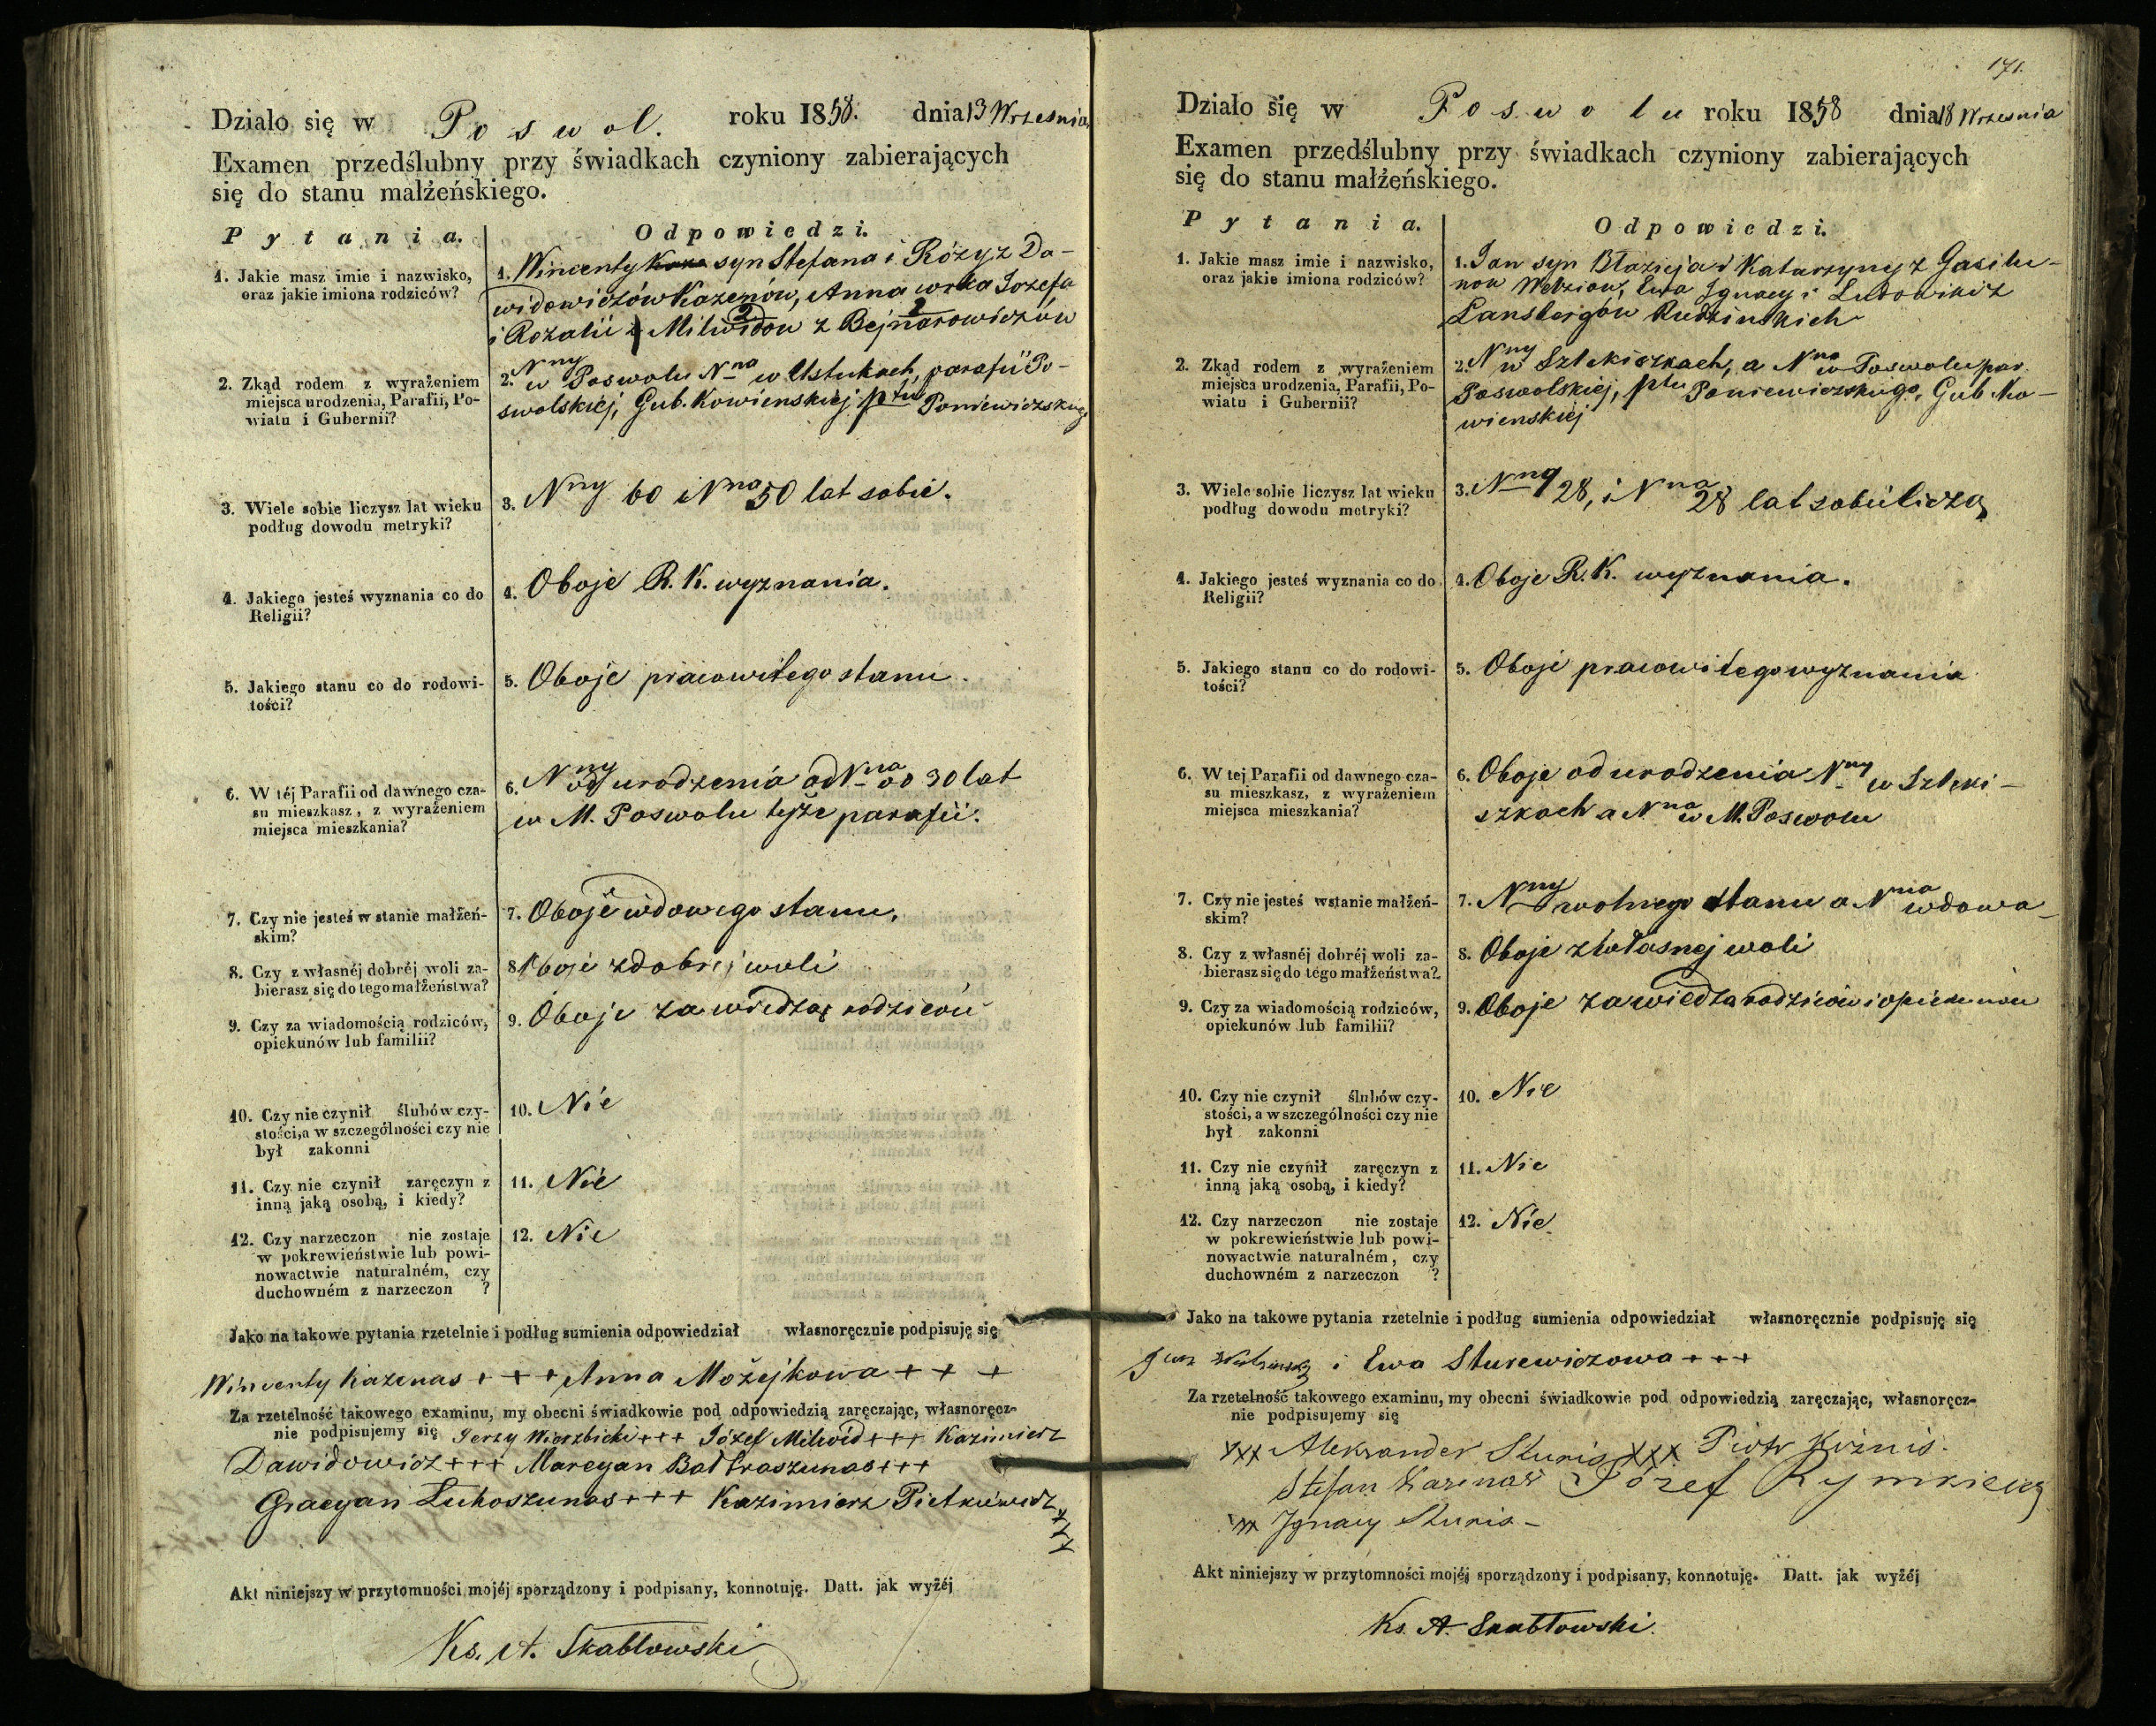 Działo się w Poswol. roku 1858. dnia 13 Wrzesnia
Examen przedślubny przy świadkach czyniony zabierających
się do stanu małżeńskiego.
Pytania. Odpowiedzi.
1. Jakie masz imie i nazwisko,
oraz jakie imiona rodziców?
1. Wincenty syn Stefana i Róży z Da-
widowiczów Kazenów, Anna córka Jozefa
i Rozalii z Milwidow z Bejnarowiczów
2. Zkąd rodem z wyrażeniem
miejsca urodzenia, Parafii, Po-
wiatu i Gubernii?
2. Nny w Poswolu Nna w Ustukach, parafii Po-
swolskiej, Gub. Kowienskiej ptu Poniewiezskiego
3. Wiele sobie liczysz lat wieku
podług dowodu metryki?
3. Nny 60 i Nna 50 lat sobie.
4. Jakiego jesteś wyznania co do
Religii?
4. Oboje R. K. wyznania.
5. Jakiego stanu co do rodowi-
tości?
5. Oboje pracowitego stanu.
6. W téj Parafii od dawnego cza-
su mieszkasz, z wyrażeniem
miejsca mieszkania?
6. Nny od urodzenia a Nna od 30 lat
w M. Poswolu tejże parafii.
7. Czy nie jesteś w stanie małżeń-
skim?
7. Oboje wdowego stanu.
8. Czy z własnéj dobréj woli za-
bierasz się do tego małżeństwa?
8. Oboje z dobrej woli
9. Czy za wiadomością rodziców,
opiekunów lub familii?
9. Oboje za wiedzą rodziców
10. Czy nie czynił ślubów czy-
stości, a w szczególności czy nie
był zakonni
10. Nie
11. Czy nie czynił zaręczyn z
inną jaką osobą, i kiedy?
11. Nie
12. Czy narzeczon nie zostaje
w pokrewieństwie lub powi-
nowactwie naturalném, czy
duchowném z narzeczon ?
12. Nie
Jako na takowe pytania rzetelnie i podług sumienia odpowiedział własnoręcznie podpisuję się
Wincenty Kazenas +++ Anna Możejkowa +++
Za rzetelność takowego examinu, my obecni świadkowie pod odpowiedzią zaręczając, własnoręcz-
nie podpisujemy się Jerzy Wierzbicki +++ Józef Milwid +++ Kazimierz
Dawidowicz +++ Marcyan Baltraszunas +++
Gracyan Lukoszunas +++ Kazimierz Pietkiewicz +++
Akt niniejszy w przytomności mojéj sporządzony i podpisany, konnotuję. Datt. jak wyżéj
Ks. A. Skabłowski
171.
Działo się w Poswolu roku 1858 dnia 18 Wrzesnia
Examen przedślubny przy świadkach czyniony zabierających
się do stanu małżeńskiego.
Pytania. Odpowiedzi.
1. Jakie masz imie i nazwisko,
oraz jakie imiona rodziców?
1. Jan syn Błazieja i Katarzyny z Gasilu-
now Ewa Ignacy i Ludowiki z
Lansbergów Rudzinskich
2. Zkąd rodem z wyrażeniem
miejsca urodzenia, Parafii, Po-
wiatu i Gubernii?
2. Nny w Szlekiszkach, a Nna w Poswolu par.
Poswolskiej, ptu Poniewiezskiego, Gub. Ko-
wienskiej
3. Wiele sobie liczysz lat wieku
podług dowodu metryki?
3. Nny 28, i Nna 28 lat sobie liczą
4. Jakiego jesteś wyznania co do
Religii?
4. Oboje R. K. wyznania.
5. Jakiego stanu co do rodowi-
tości?
5. Oboje pracowitego wyznania
6. W tej Parafii od dawnego cza-
su mieszkasz, z wyrażeniem
miejsca mieszkania?
6. Oboje od urodzenia Nny w Szleki-
szkach a Nna w M. Poswolu
7. Czy nie jesteś wstanie małżeń-
skim?
7. Nny wolnego stanu a Nna wdowa-
8. Czy z własnéj dobréj woli za-
bierasz się do tego małżeństwa?
8. Oboje z własnej woli
9. Czy za wiadomością rodziców,
opiekunów lub familii?
9. Oboje za wiedzą rodziców i opiekunow
10. Czy nie czynił ślubów czy-
stości, a w szczególności czy nie
był zakonni
10. Nie
11. Czy nie czynił zaręczyn z
inną jaką osobą, i kiedy?
11. Nie
12. Czy narzeczon nie zostaje
w pokrewieństwie lub powi-
nowactwie naturalném, czy
duchowném z narzeczon ?
12. Nie
Jako na takowe pytania rzetelnie i podług sumienia odpowiedział własnoręcznie podpisuję się
i Ewa Sturewiczowa +++
Za rzetelność takowego examinu, my obecni świadkowie pod odpowiedzią zaręczając, własnoręcz-
nie podpisujemy się
xxx Aleksander Skuris xxx Piotr
Stefan Kazenas Józef Rymkiewicz
xx Ignacy Skuris-
Akt niniejszy w przytomności mojéj sporządzony i podpisany, konnotuję. Datt. jak wyżéj
Ks. A. Skabłowski.